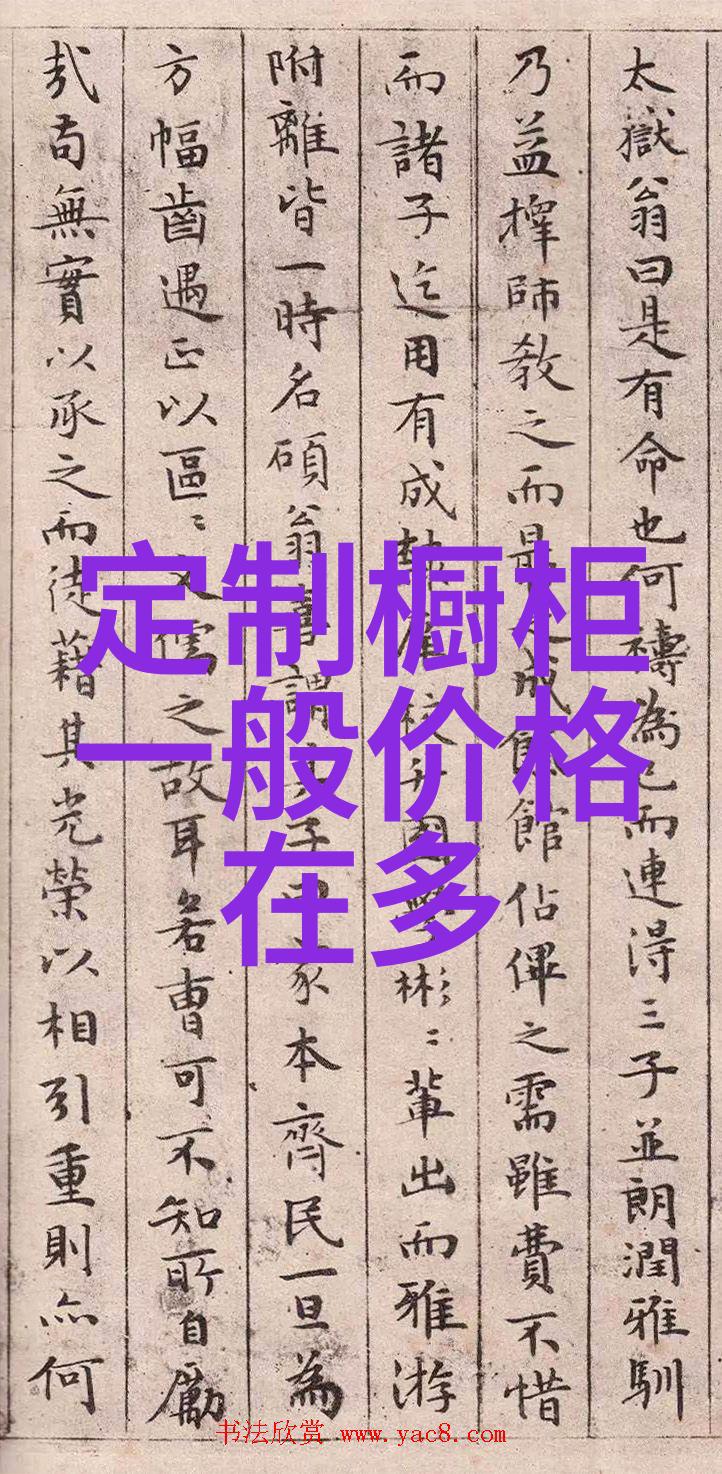 太嶽翁曰是有命也何 為已而連得三子並朗潤雅馴
乃益擇師教之而是 成 館佔俾之需雖費不惜
而諸子迄用有成 彬〻輩出而雅游
附離皆一時名碩翁 謂 子 家本齊民一旦為
方幅齒遇正以區〻文儒之故耳若曹可不知所自勵
哉苟無實以承之而徒藉其光榮以相引重則亦何
定制橱柜
一般价格
在多
书法欣赏 www.yac8.com